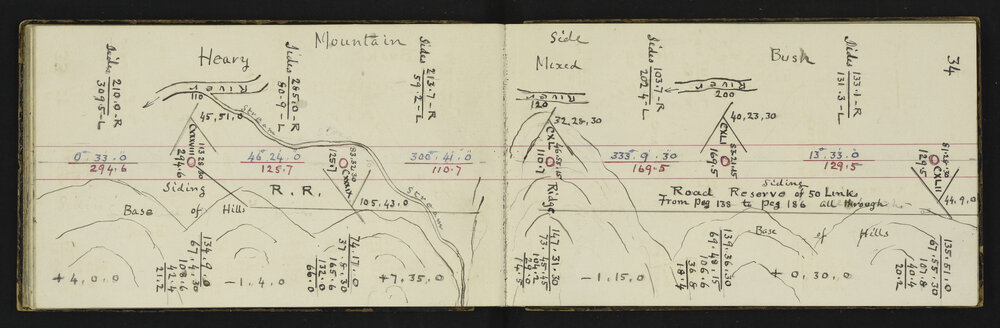 Mountain
Heavy
Side
Mixed
Bush
34
Sides
210.0-R
309.5-L
River
110
45,51,0
CXXXVIII
113.28.30
294.6
0° 33.0
294.6
Siding
Base of Hills
+4.0.0
134.9.0
67.4.30
108.6
42.4
21.2
Sides
285.0-R
80.9-L
Stream
46.24.0
125.7
R. R.
-1.4.0
83.52.30
CXXXIX
125.7
105,43.0
74.17.0
37.8.30
165.6
132.0
66.0
Sides
213.7-R
59.2-L
300.41.0
110.7
Stream
+7.35.0
River
120
32,28,30
CXL
46.57.15
110.7
Ridge
147.31.30
73.45.45
104.2
29.0
14.5
Sides
103.7-R
202.4-L
333.9.30
169.5
-1.15.0
River
200
40,23,30
CXLI
83.21.15
169.5
Siding
Road Reserve of 50 Links
From peg 138 to peg 186 all through
139.36.30
69.48.15
106.6
36.8
18.4
Sides
133.1-R
131.3-L
13.33.0
129.5
Base of Hills
+0.30.0
CXLII
129.5
44.9.0
135.51.0
67.55.30
107.8
40.4
20.2